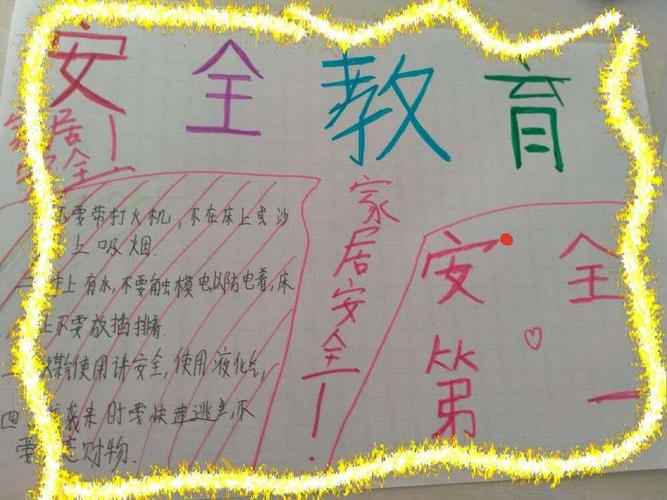 安全教育
家居
安全！
不要带打火机，不在床上或沙
上吸烟.
上有水，不要触摸电以防电着，床
上不要放插排
使用讲安全，使用液化气，
四 来时要快速逃生，不
要 财物.
家居安全！
安全
第一